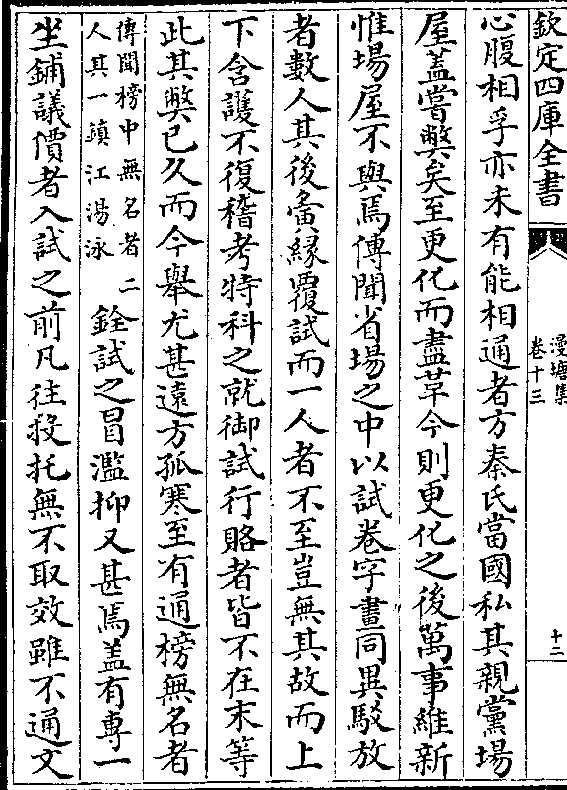 欽定四庫全書
漫塘集
卷十三
十二
心腹相孚亦未有能相通者方秦氏當國私其親黨場
屋蓋嘗弊矣至更化而盡革今則更化之後萬事維新
惟場屋不與焉傳聞省場之中以試卷字畫同異駮放
者數人其後夤緣覆試而一人者不至豈無其故而上
下含護不復稽考特科之就御試行賂者皆不在末等
此其弊已久而今舉尤甚遠方孤寒至有通榜無名者
傳聞榜中無名者二
人其一鎮江湯泳
銓試之冒濫抑又甚焉蓋有專一
坐鋪議價者入試之前凡往投托無不取效雖不通文